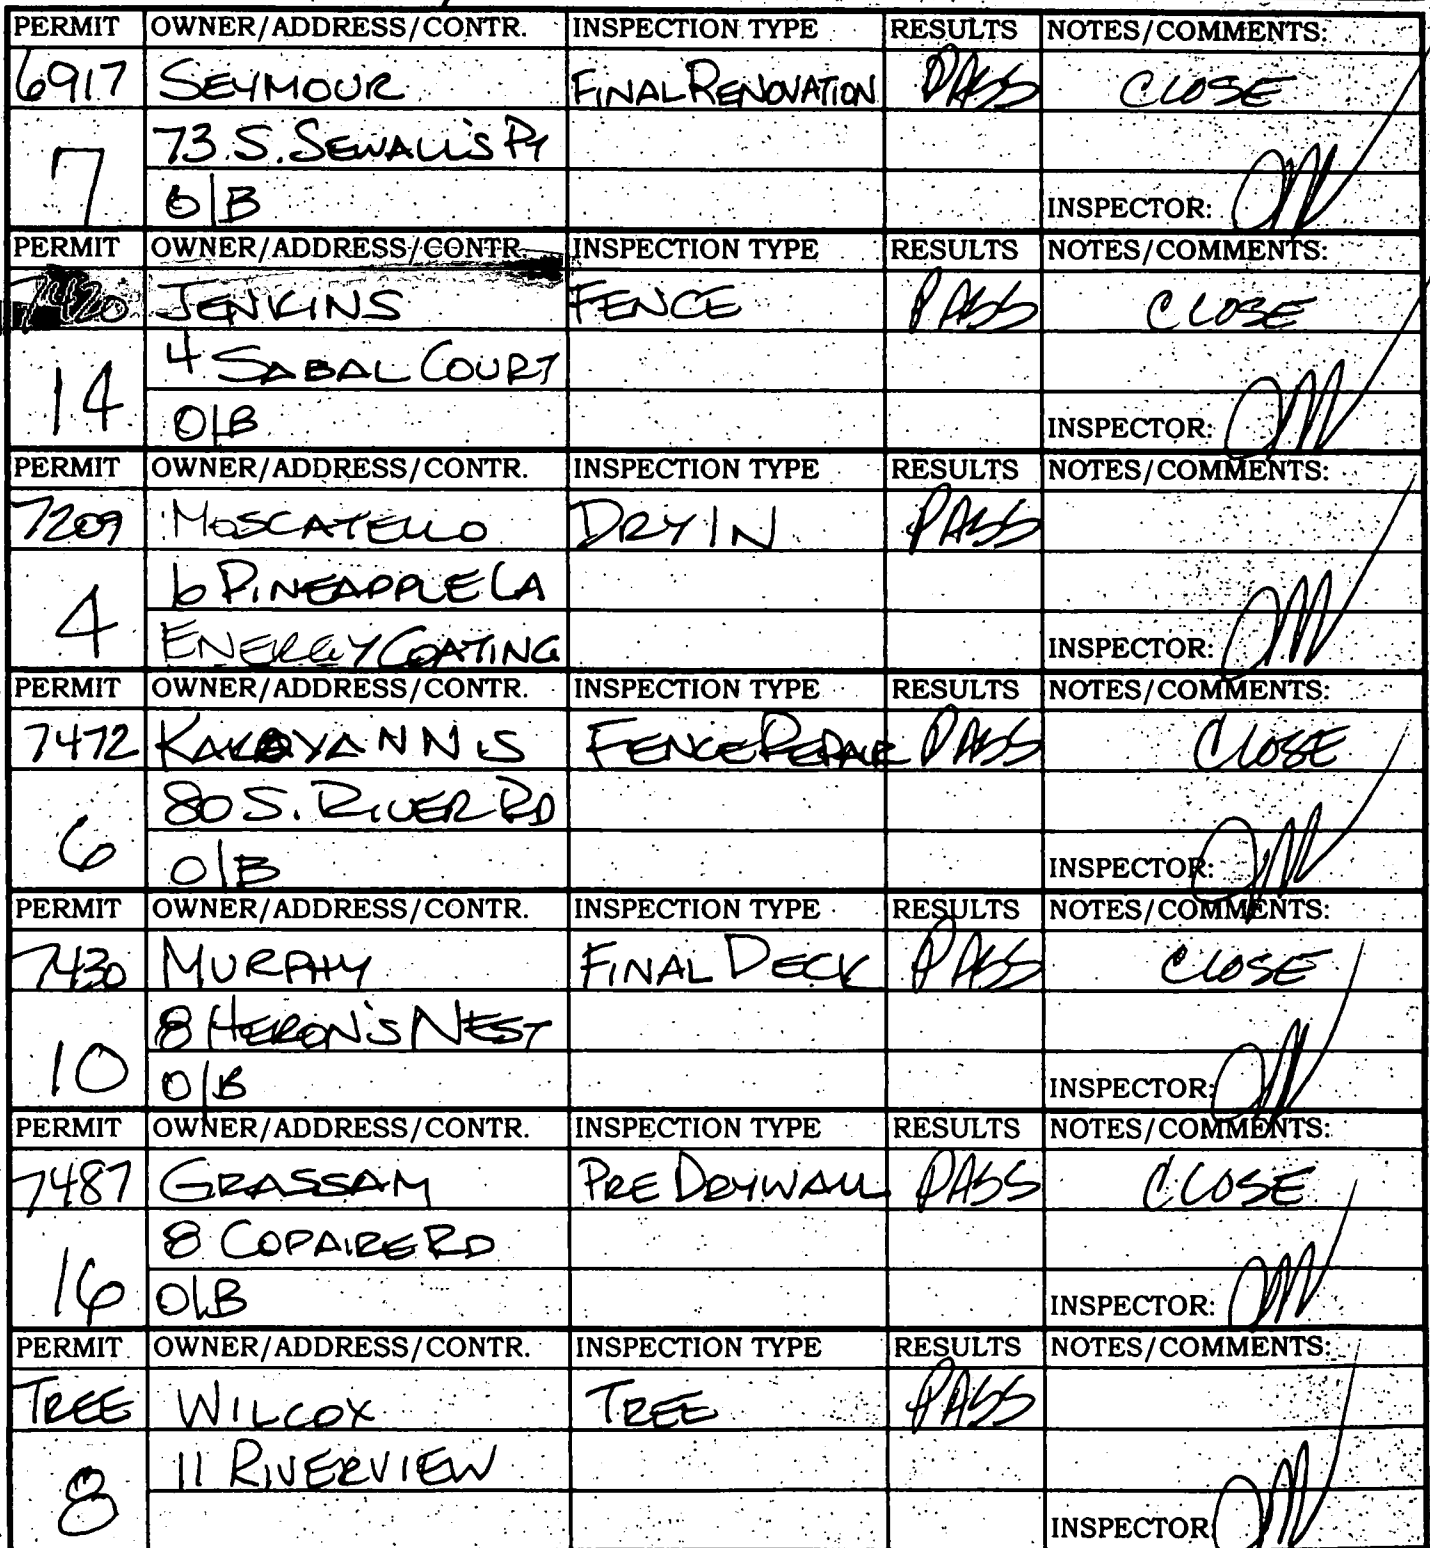 PERMIT OWNER/ADDRESS/CONTR. INSPECTION TYPE RESULTS NOTES/COMMENTS:
6917 SEYMOUR FINAL RENOVATION PASS CLOSE
7 73 S. SEWALL'S PT
O/B INSPECTOR:
PERMIT OWNER/ADDRESS/CONTR. INSPECTION TYPE RESULTS NOTES/COMMENTS:
JENKINS FENCE PASS CLOSE
14 4 SABAL COURT
O/B INSPECTOR:
PERMIT OWNER/ADDRESS/CONTR. INSPECTION TYPE RESULTS NOTES/COMMENTS:
7209 MOSCATELLO DRY IN PASS
4 6 PINEAPPLE LA
ENERGY COATING INSPECTOR:
PERMIT OWNER/ADDRESS/CONTR. INSPECTION TYPE RESULTS NOTES/COMMENTS:
7472 FENCE REPAIR PASS CLOSE
6 80 S. RIVER RD
O/B INSPECTOR:
PERMIT OWNER/ADDRESS/CONTR. INSPECTION TYPE RESULTS NOTES/COMMENTS:
7430 MURPHY FINAL DECK PASS CLOSE
10 8 HERON'S NEST
O/B INSPECTOR:
PERMIT OWNER/ADDRESS/CONTR. INSPECTION TYPE RESULTS NOTES/COMMENTS:
7487 GRASSAM PRE DRYWALL PASS CLOSE
16 8 COPAIRE RD
O/B INSPECTOR:
PERMIT OWNER/ADDRESS/CONTR. INSPECTION TYPE RESULTS NOTES/COMMENTS:
TREE WILCOX TREE PASS
8 11 RIVERVIEW
INSPECTOR